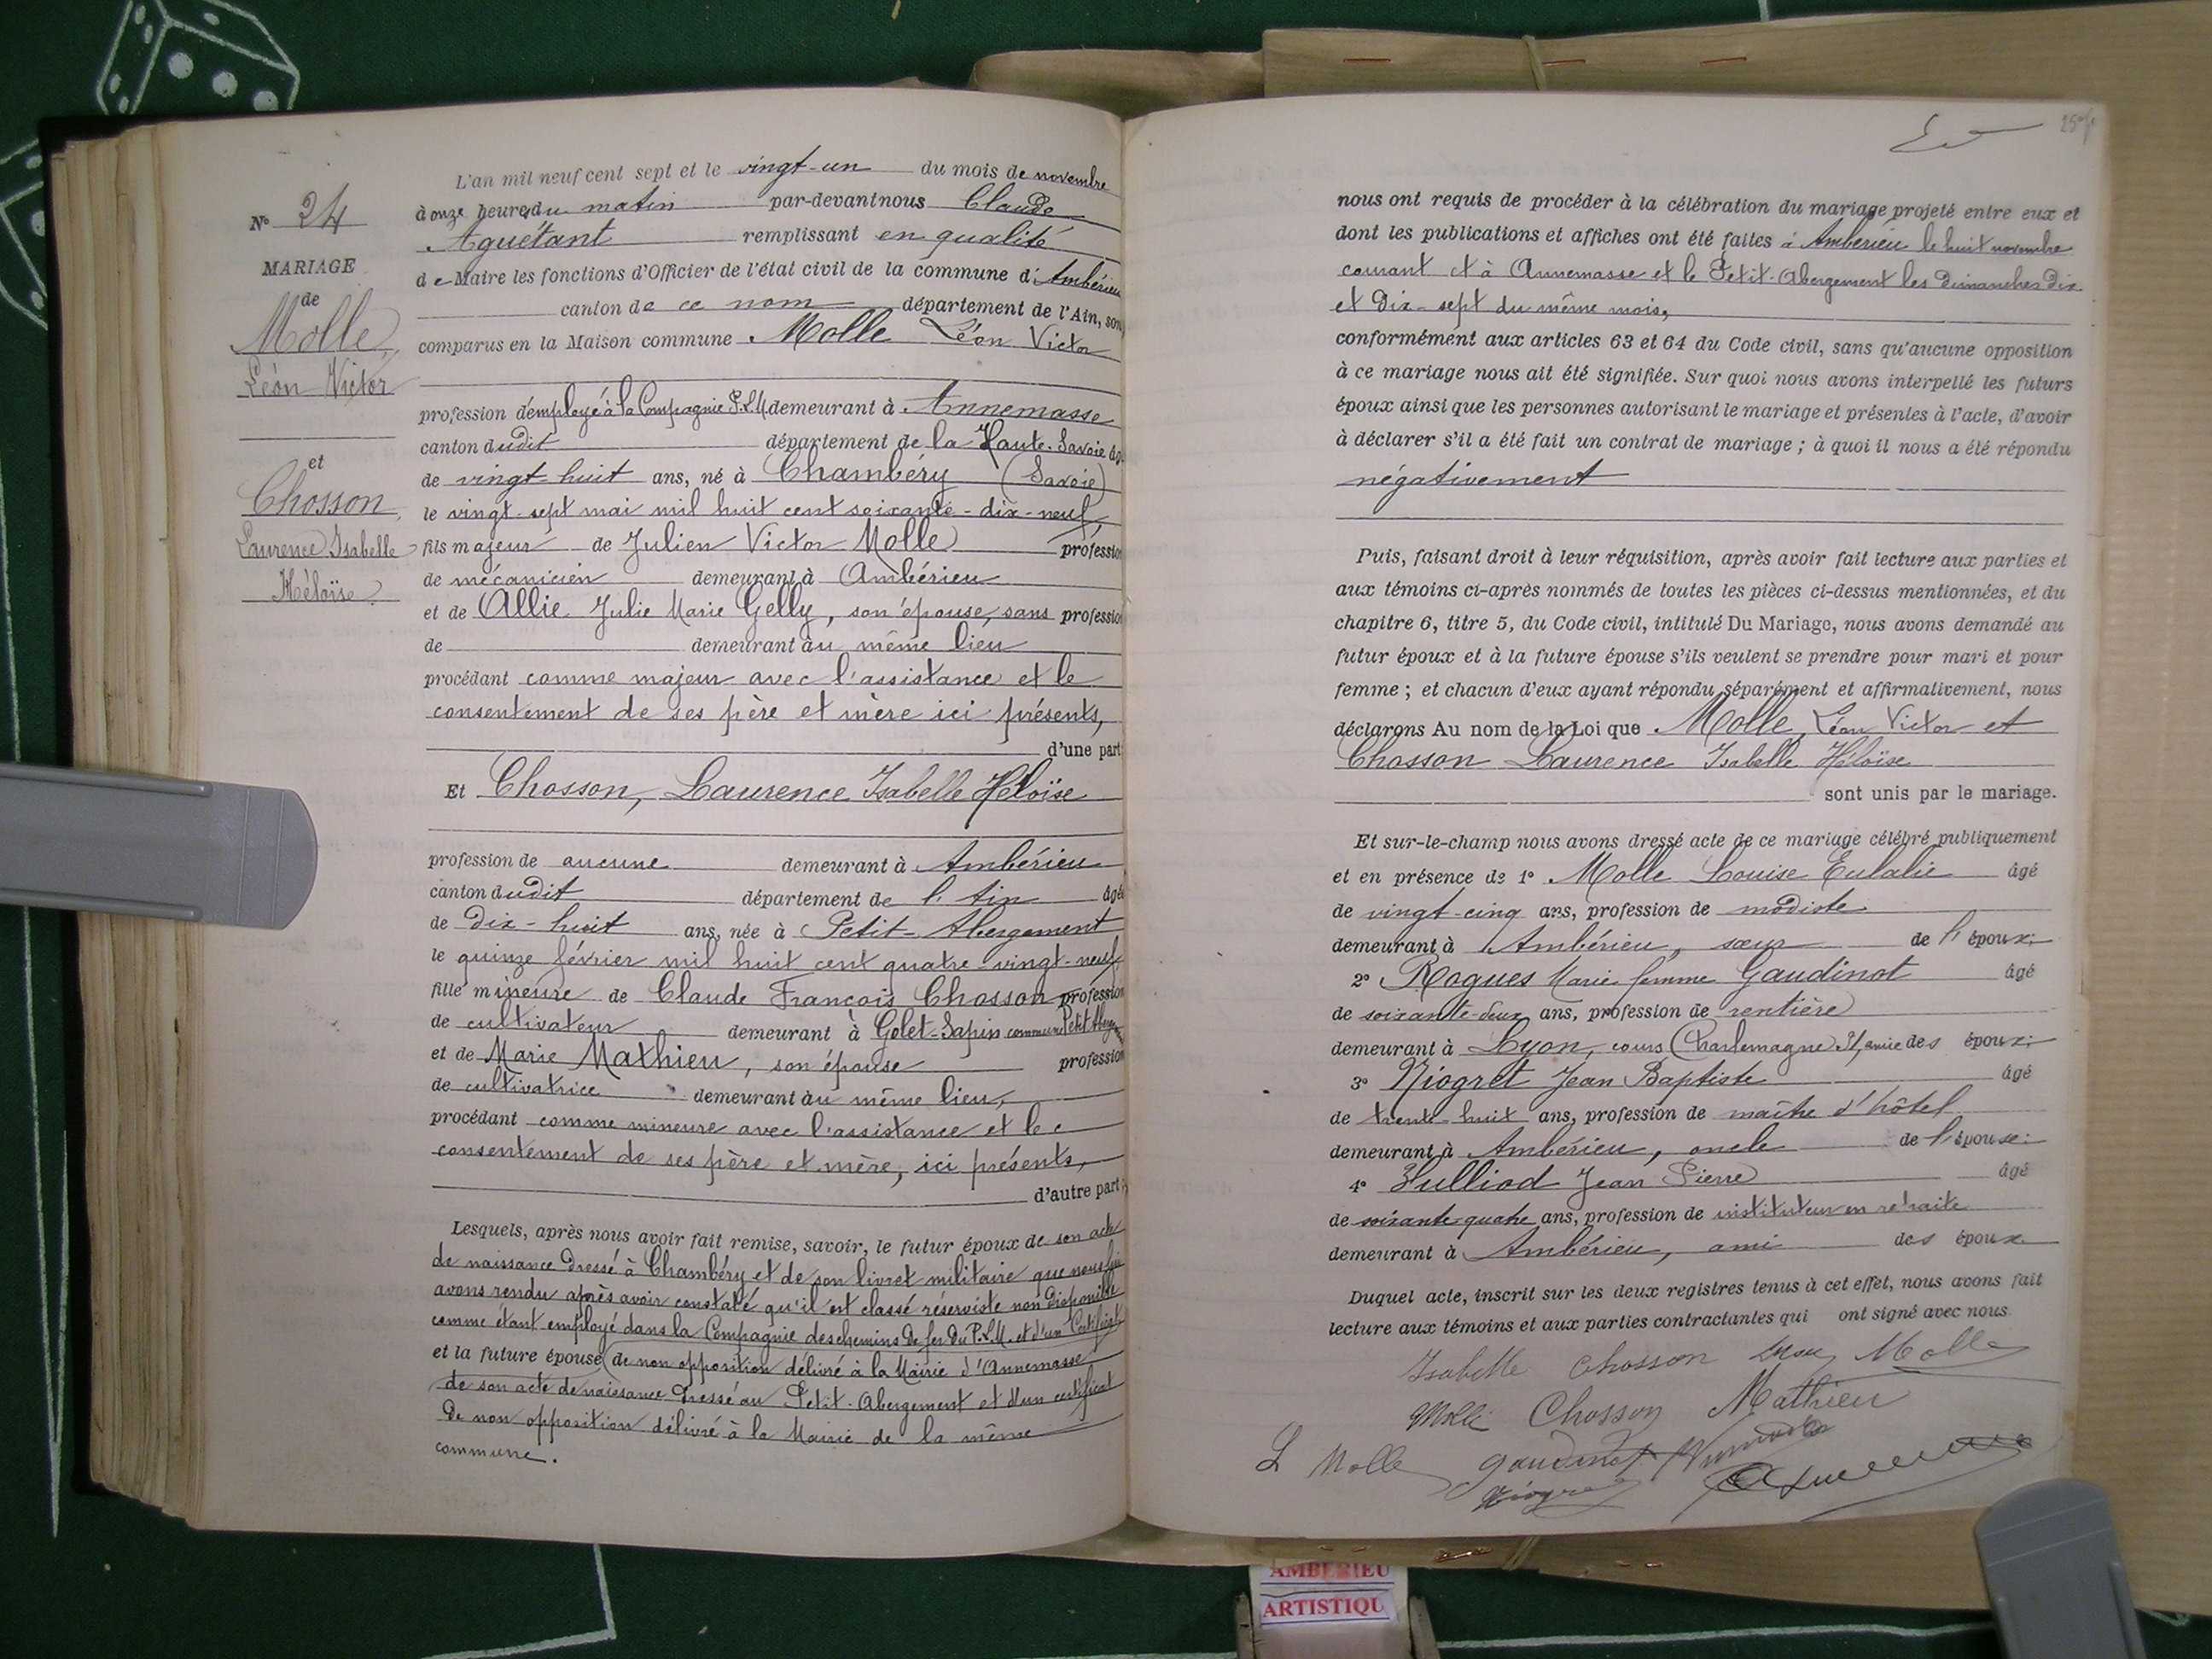 N° 24
MARIAGE
de
Molle,
Léon Victor
et
Chosson,
Laurence Isabelle
Héloïse.
L'an mil neuf cent sept et le vingt-un du mois de novembre
à onze heures du matin par-devant nous Claude
Aguétant remplissant en qualité
de Maire les fonctions d'Officier de l'état civil de la commune d'Ambérieu
canton de ce nom département de l'Ain, son
comparus en la Maison commune Molle Léon Victor
profession d'employé à la Compagnie P.L.M. demeurant à Annemasse
canton dudit département de la Haute-Savoie âgé
de vingt-huit ans, né à Chambéry (Savoie)
le vingt-sept mai mil huit cent soixante-dix-neuf,
fils majeur de Julien Victor Molle profession
de mécanicien demeurant à Ambérieu
et de Allie Julie Marie Gelly, son épouse, sans profession
de demeurant au même lieu
procédant comme majeur avec l'assistance et le
consentement de ses père et mère ici présents,
d'une part
Et Chosson, Laurence Isabelle Héloïse
profession de aucune demeurant à Ambérieu
canton dudit département de l'Ain âgée
de dix-huit ans, née à Petit-Abergement
le quinze février mil huit cent quatre-vingt-neuf
fille mineure de Claude François Chosson profession
de cultivateur demeurant à Golet-Sapin commune Petit Aberg
et de Marie Mathieu, son épouse profession
de cultivatrice demeurant au même lieu,
procédant comme mineure avec l'assistance et le
consentement de ses père et mère, ici présents,
d'autre part;
Lesquels, après nous avoir fait remise, savoir, le futur époux de son acte
de naissance dressé à Chambéry et de son livret militaire que nous lui
avons rendu après avoir constaté qu'il est classé réserviste non disponible
comme étant employé dans la Compagnie des chemins de fer du P.L.M. et d'un Certificat
et la future épouse (de non opposition délivré à la Mairie d'Annemasse
de son acte de naissance dressé au Petit-Abergement et d'un certificat
de non opposition délivré à la Mairie de la même
commune.
nous ont requis de procéder à la célébration du mariage projeté entre eux et
dont les publications et affiches ont été faites à Ambérieu le huit novembre
courant et à Annemasse et le Petit-Abergement les dimanches dix
et dix-sept du même mois,
conformément aux articles 63 et 64 du Code civil, sans qu'aucune opposition
à ce mariage nous ait été signifiée. Sur quoi nous avons interpellé les futurs
époux ainsi que les personnes autorisant le mariage et présentes à l'acte, d'avoir
à déclarer s'il a été fait un contrat de mariage ; à quoi il nous a été répondu
négativement
Puis, faisant droit à leur réquisition, après avoir fait lecture aux parties et
aux témoins ci-après nommés de toutes les pièces ci-dessus mentionnées, et du
chapitre 6, titre 5, du Code civil, intitulé Du Mariage, nous avons demandé au
futur époux et à la future épouse s'ils veulent se prendre pour mari et pour
femme ; et chacun d'eux ayant répondu séparément et affirmativement, nous
déclarons Au nom de la Loi que Molle, Léon Victor et
Chosson Laurence Isabelle Héloïse
sont unis par le mariage.
Et sur-le-champ nous avons dressé acte de ce mariage célébré publiquement
et en présence de 1° Molle Louise Eulalie âgé
de vingt-cinq ans, profession de modiste
demeurant à Ambérieu, sœur de l'époux;
2° Rogues Marie femme Gaudinot âgé
de soixante-deux ans, profession de rentière
demeurant à Lyon, cours Charlemagne 31, amie des époux;
3° Niogret Jean Baptiste âgé
de trente-huit ans, profession de maître d'hôtel
demeurant à Ambérieu, oncle de l'épouse;
4° Hulliod Jean Pierre âgé
de soixante quatre ans, profession de instituteur en retraite
demeurant à Ambérieu, ami des époux
Duquel acte, inscrit sur les deux registres tenus à cet effet, nous avons fait
lecture aux témoins et aux parties contractantes qui ont signé avec nous
Isabelle Chosson Léon Molle
Molle Chosson Mathieu
L Molle Gaudinot
Niogret
AMBERIEU
ARTISTIQU